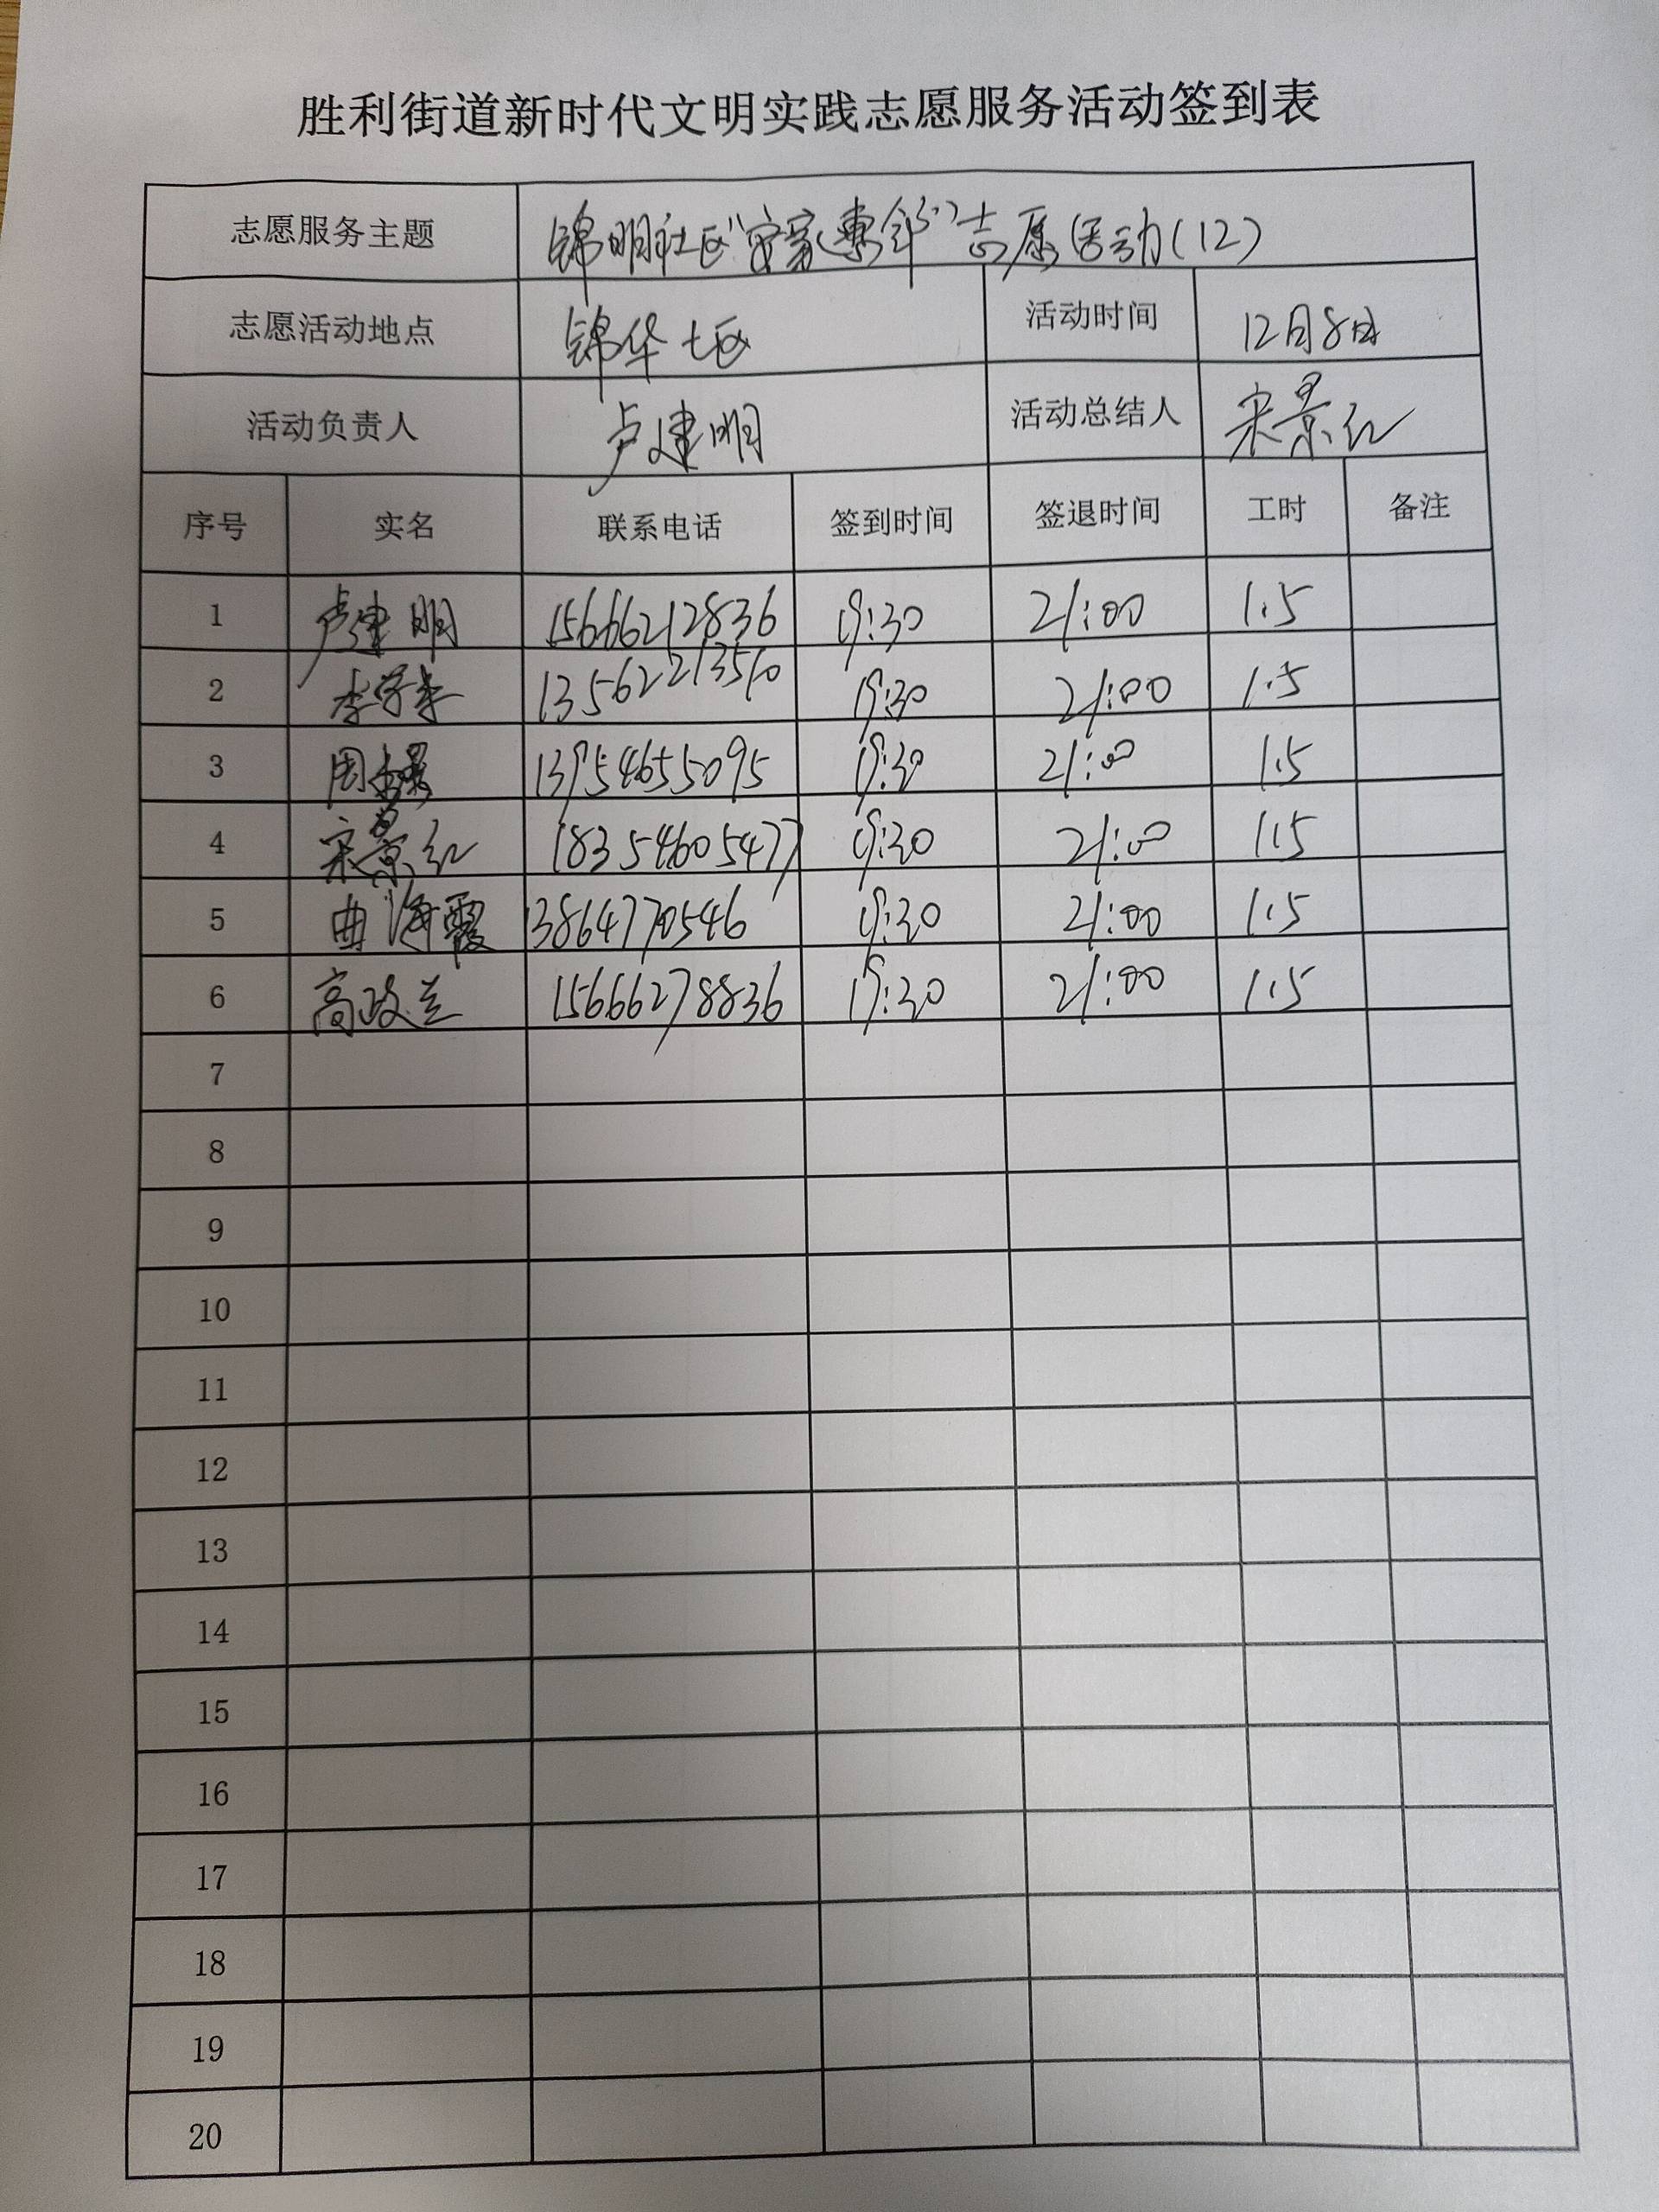 胜利街道新时代文明实践志愿服务活动签到表
志愿服务主题 锦明社区"安家惠邻"志愿活动(12)
志愿活动地点 锦华七区 活动时间 12月8日
活动负责人 卢建明 活动总结人 宋景红
序号 实名 联系电话 签到时间 签退时间 工时 备注
1 卢建明 15666212836 19:30 21:00 1.5
2 李学孝 13562213510 19:30 21:00 1.5
3 周 13954655095 19:30 21:00 1.5
4 宋景红 18354605477 19:30 21:00 1.5
5 曲海霞 13864770546 19:30 21:00 1.5
6 高政兰 15666278836 19:30 21:00 1.5
7
8
9
10
11
12
13
14
15
16
17
18
19
20